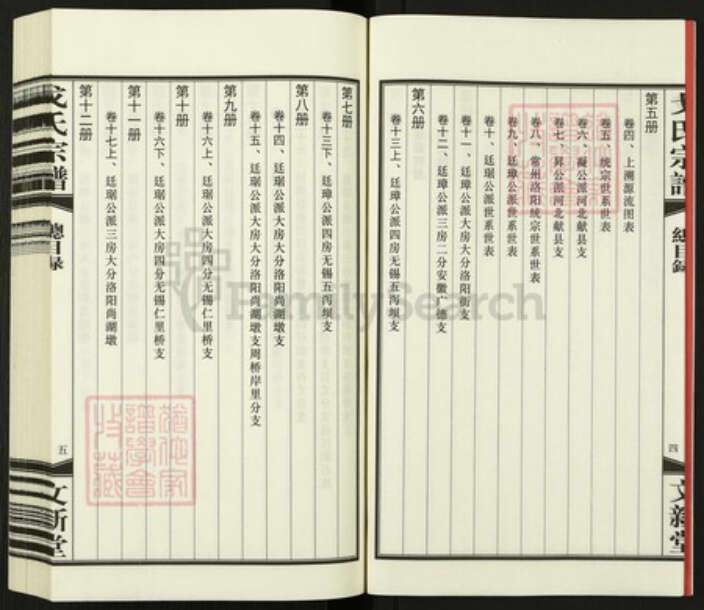 第五册
卷四、上溯源流图表
卷五、统宗世系世表
卷六、凝公派河北献县支
卷七、昇公派河北献县支
卷八、常州洛阳统宗世系世表
卷九、廷璋公派世系世表
卷十、廷瑚公派世系世表
卷十一、廷璋公派大房大分洛阳街支
卷十二、廷璋公派三房二分安徽广德支
第六册
卷十三上、廷璋公派四房无锡五泻坝支
四
文新堂
第七册
卷十三下、廷璋公派四房无锡五泻坝支
第八册
卷十四、廷瑚公派大房大分洛阳尚湖墩支
卷十五、廷瑚公派大房大分洛阳尚湖墩支周桥岸里分支
第九册
卷十六上、廷瑚公派大房四分无锡仁里桥支
第十册
卷十六下、廷瑚公派大房四分无锡仁里桥支
第十一册
卷十七上、廷瑚公派三房大分洛阳尚湖墩
第十二册
戈氏宗譜
總目録
五
文新堂
FamilySearch